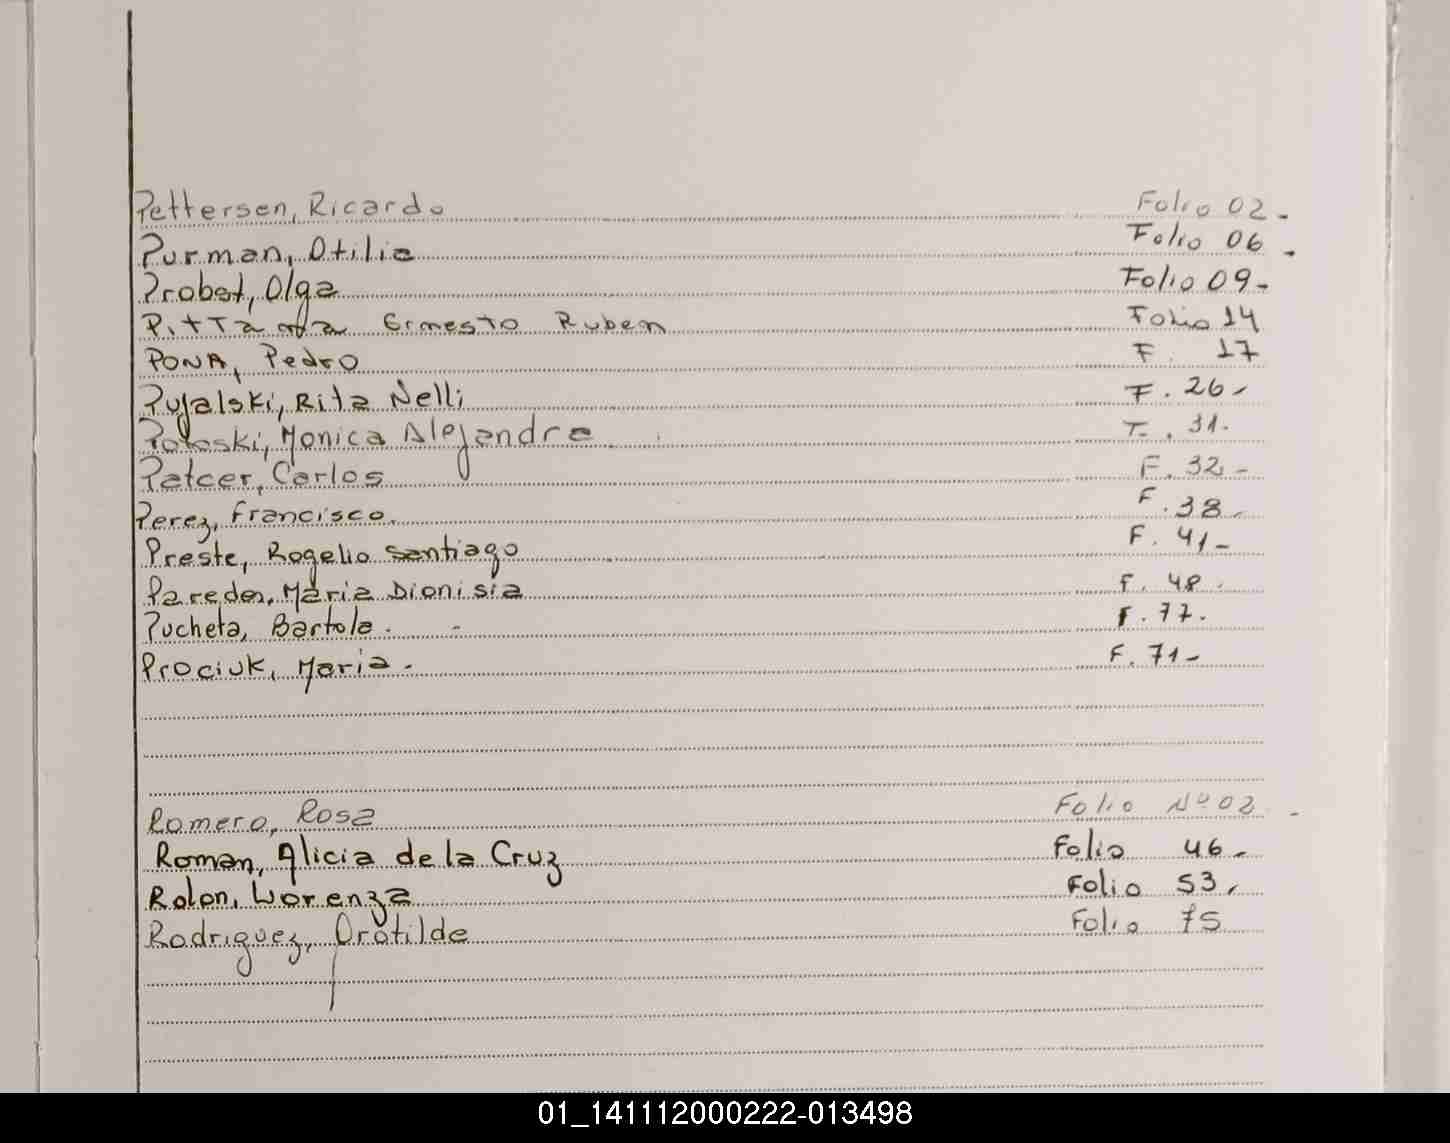 Pettersen, Ricardo Folio 02-
Purman, Otilia Folio 06-
Probst, Olga Folio 09-
Ernesto Ruben Folio 14
PONA, Pedro F. 17
Pujalski, Rita Nelli F. 26-
Monica Alejandra F. 31.
Petcer, Carlos F. 32-
Perez, Francisco. F. 38-
Preste, Rogelio Santiago F. 41-
Paredes, Maria Dionisia F. 48.
Pucheta, Bartola. - F. 77.
Prociuk, Maria. F. 71-
Romero, Rosa Folio Nº 02-
Roman, Alicia de la Cruz Folio 46-
Rolon, Lorenza Folio 53,
Rodriguez, Folio 75
01_141112000222-013498